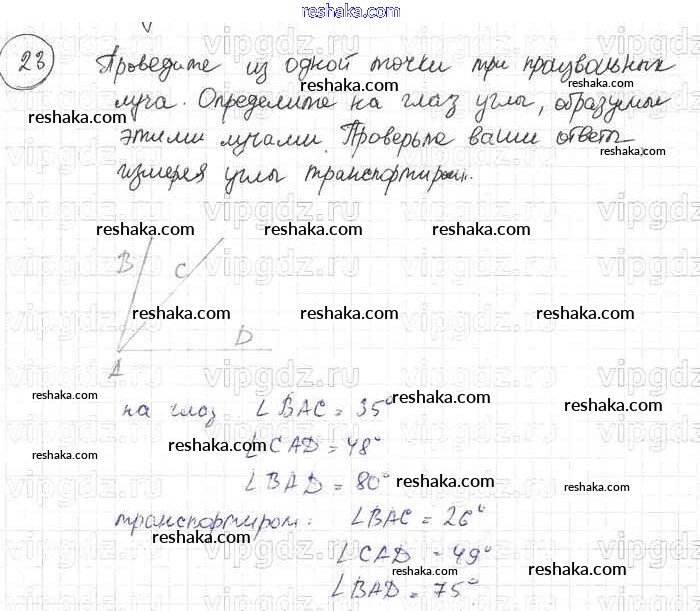 reshaka.com
23 Проведите из одной точки три произвольных
луча. Определите на глаз углы, образуемые
этими лучами. Проверьте ваши ответы,
измеряя углы транспортиром.
B C
D
A
на глаз ∠BAC = 35°
∠CAD = 48°
∠BAD = 80°
транспортиром: ∠BAC = 26°
∠CAD = 49°
∠BAD = 75°